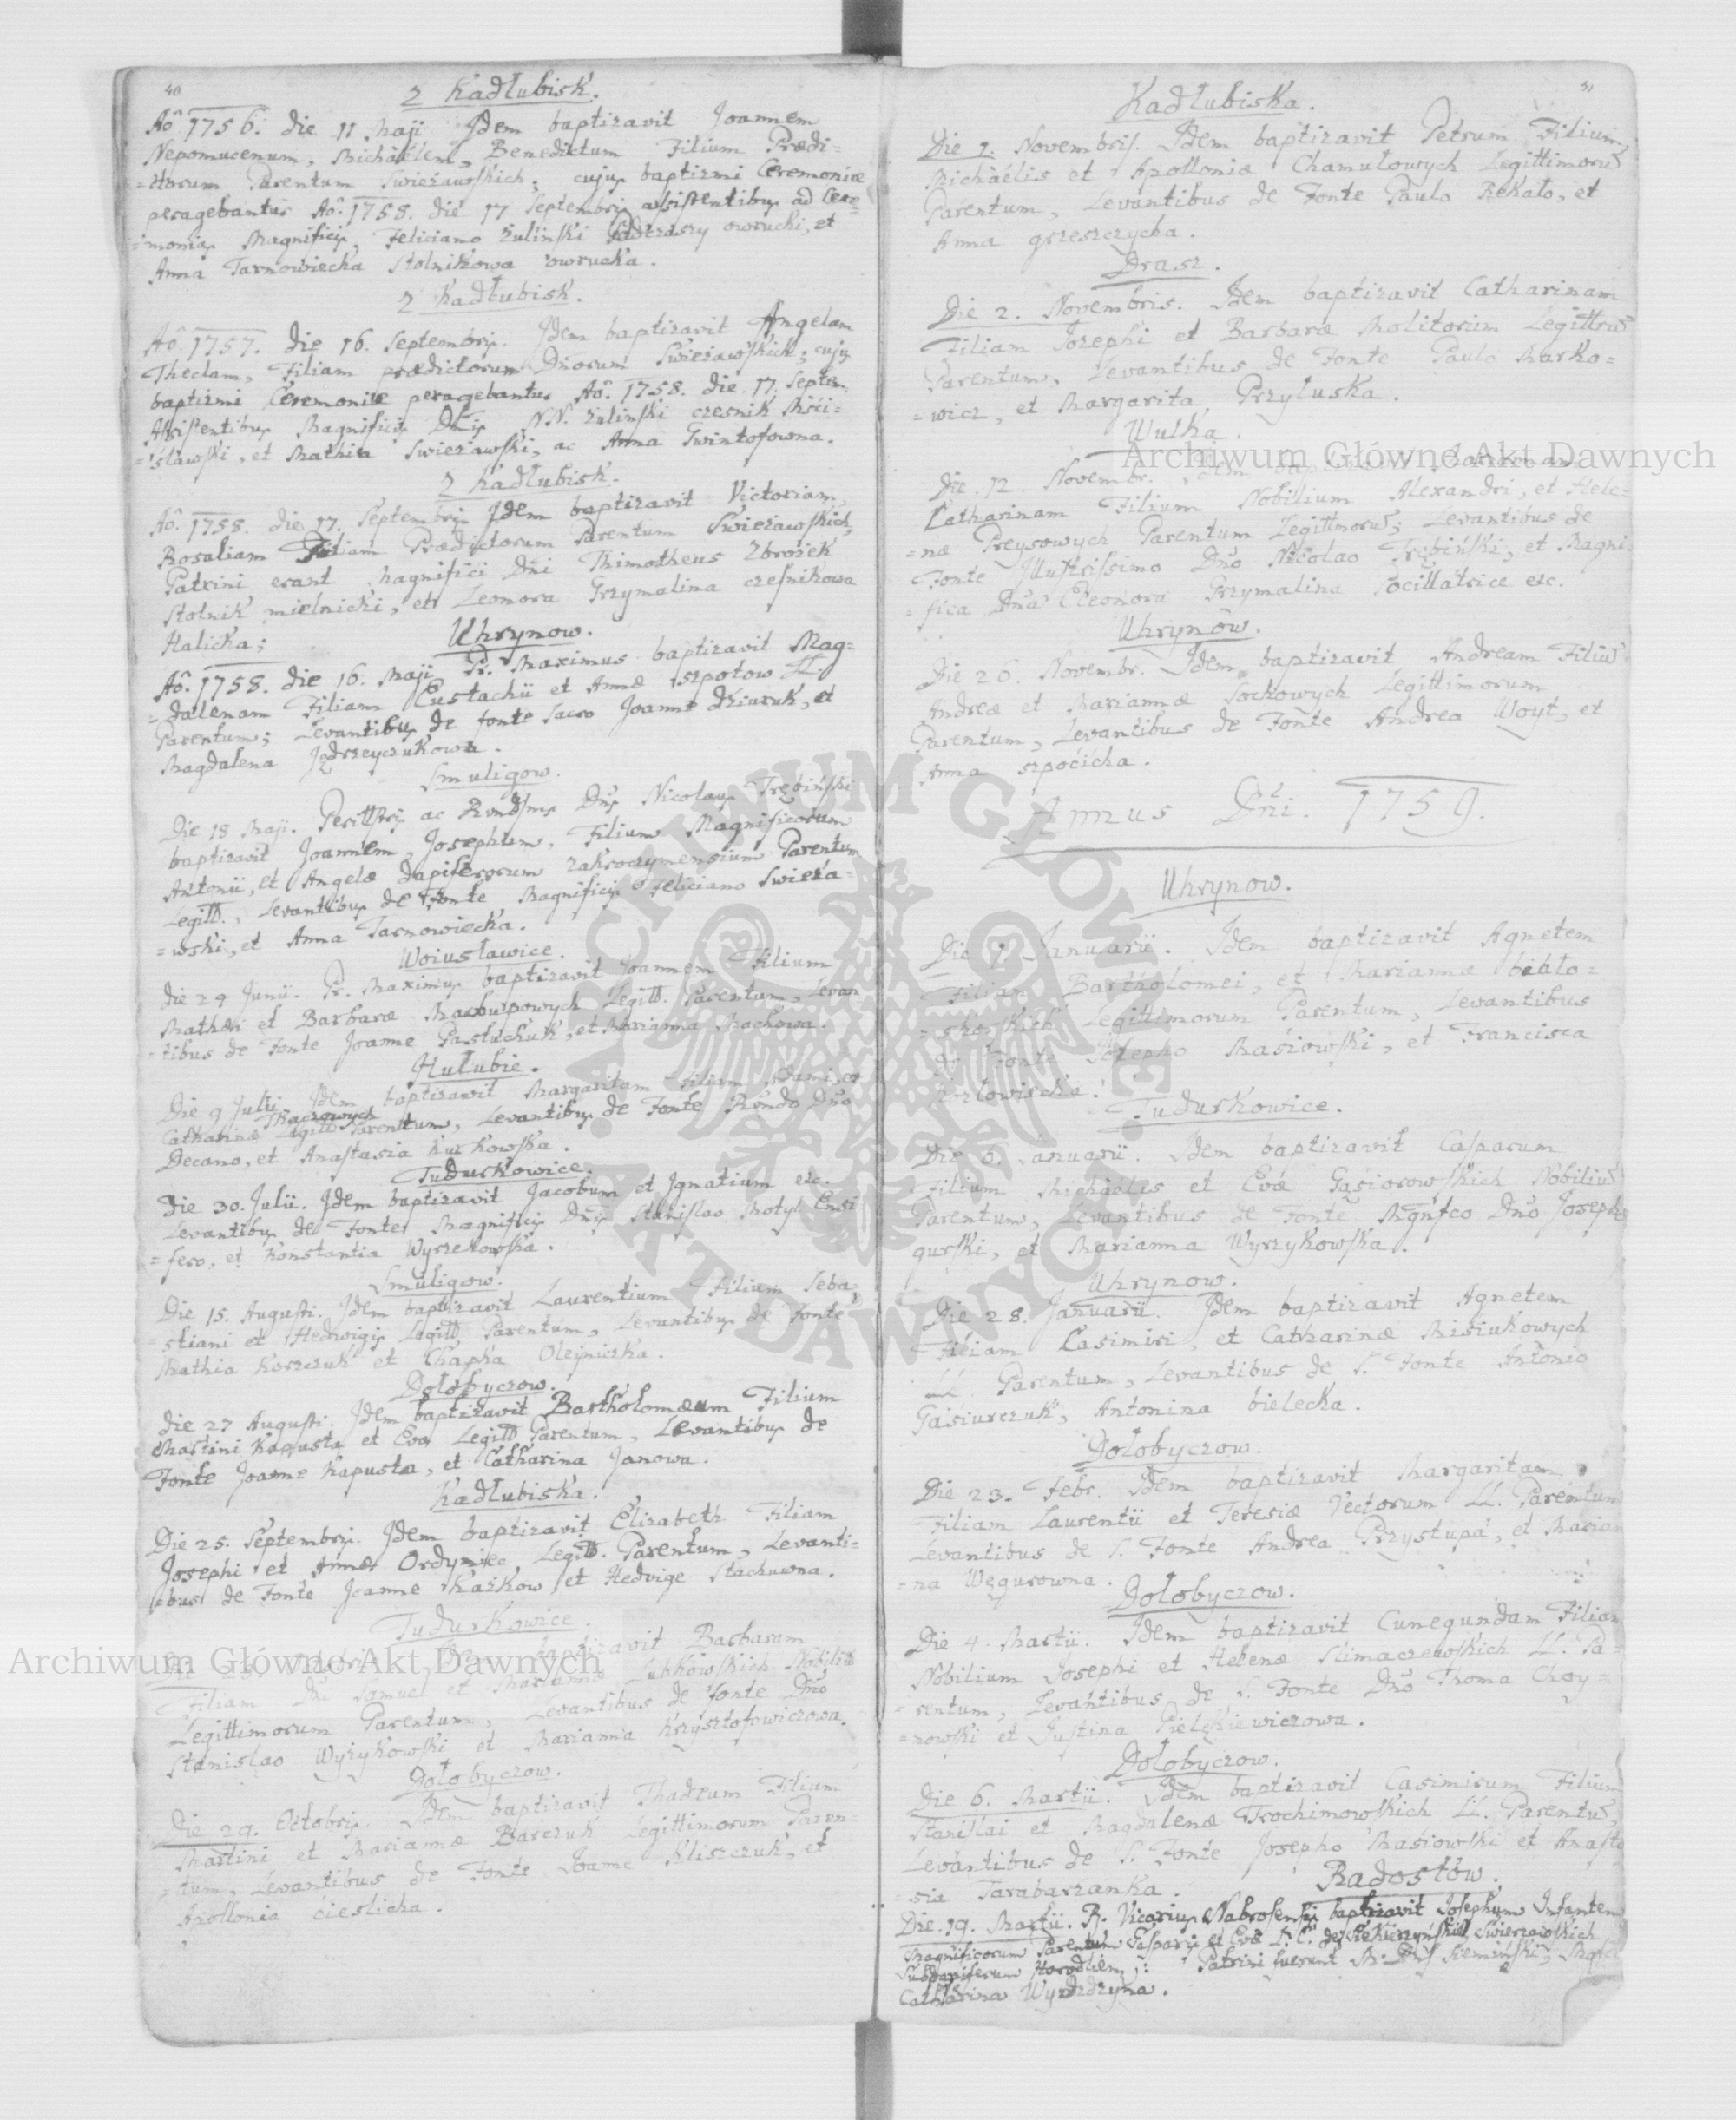 40
z Kadłubisk.
Aô. 1756. die 11 Maji Idem baptizavit Joannem
Nepomucenum, Michaëlem, Benedictum Filium Prædi=
=ctorum Parentum Swieżawskich; cujus baptizmi Ceremoniæ
peragebantur Aô. 1758. die 17 Septembris assistentibus ad Cere=
=monias Magnificis, Feliciano Żulinski Podczaszy owrucki, et
Anna Tarnowiecka Stolnikowa owrucka.
z Kadłubisk.
Aô. 1757. die 16. Septembris. Idem baptizavit Angelam
Theclam, Filiam prædictorum Dnorum Swieżawskich; cujus
baptizmi Ceremoniæ peragebantur Aô. 1758. die 17. Septem.
Assistentibus Magnificis Dnis N.N. Żulinski czesnik Mści=
=sławski, et Mathia Swieżawski, ac Anna Gwintofowna.
z Kadłubisk.
Aô. 1758. die 17. Septembris Idem baptizavit Victoriam,
Rosaliam Filiam Prædictorum Parentum Swieżawskich,
Patrini erant Magnifici Dni Thimotheus Zbrożek
Stolnik mielnicki, et Leonora Grzymalina czesnikowa
Halicka;
Uhrynow.
Aô. 1758. die 16. Maji P. Maximus baptizavit Mag=
=dalenam Filiam Eustachii et Annæ szpotow LL
Parentum; Levantibus de fonte sacro Joanne Dziuruk, et
Magdalena Jędrzeyczukowa.
Smuligow.
Die 18 Maji. Perillstris ac Rvndsmus Dns Nicolaus Trębiński
baptizavit Joannem, Josephum, Filium Magnificorum
Antonii, et Angelæ Dapiferorum zakroczymensium Parentum
Legitt., Levantibus de Fonte Magnificis Feliciano Swieża=
=wski, et Anna Tarnowiecka.
Woiusławice.
Die 24 Junii. P. Maximus baptizavit Joannem Filium
Mathæi et Barbaræ Legitt. Parentum, Levan
=tibus de Fonte Joanne Pastuchuk, et Marianna Mochowa.
Hułubie.
Die 9 Julii Idem baptizavit Margaritam Filiam Adami, et
Tkaczowych
Catharinæ Legitt Parentum, Levantibus de Fonte Rvndo Dno
Decano, et Anastasia Kurkowska.
Tudurkowice.
Die 30. Julii. Idem baptizavit Jacobum et Ignatium etc.
Levantibus de Fonte Magnificis Dnis Stanislao Motyl Ensi
=fero, et Konstantia Wyrzekowska.
Smuligow.
Die 15. Augusti. Idem baptizavit Laurentium Filium Seba=
=stiani et Hedwigis Legitt Parentum, Levantibus de Fonte
Mathia Koszczuk et Chapka Oleiniczka.
Dołobyczow.
Die 27 Augusti. Idem baptizavit Bartholomæum Filium
Martini Kapusta et Eva Legitt Parentum, Levantibus de
Fonte Joanne Kapusta, et Catharina Janowa.
Kadłubiska.
Die 25. Septembris. Idem baptizavit Elizabeth Filiam
Josephi et Annæ Ordyniec Legitt. Parentum, Levanti=
=bus de Fonte Joanne Kazkow et Hedvige Stachuwna.
Tudurkowice.
Idem baptizavit Barbaram
Filiam Dni Samuel et Marianna Lubkowskich Nobiliũ
Legittimorum Parentum, Levantibus de Fonte Dno
Stanislao Wyżykowski et Marianna Krzysztofowiczowa.
Dołobyczow.
Die 29. Octobris. Idem baptizavit Thadeum Filium
Martini et Mariannæ Barczuk Legittimorum Paren=
=tum, Levantibus de Fonte Joanne Kliszczuk, et
Apollonia cieslicha.
41
Kadłubiska.
Die 1. Novembris. Idem baptizavit Petrum Filium
Michaëlis et Apolloniæ Chamułowych Legittimorũ
Parentum, Levantibus de Fonte Paulo Rekało, et
Anna grzeszczycha.
Drasz.
Die 2. Novembris. Idem baptizavit Catharinam
Filiam Josephi et Barbaræ Molitorum Legittrũ
Parentum, Levantibus de Fonte Paulo Marko=
=wicz, et Margarita Przyłuska.
Wulka.
Die 12. Novembr.
Catharinam Filium Nobillium Alexandri, et Hele=
=næ Preysowych Parentum Legittmorũ; Levantibus de
Fonte Illustrissimo Dno Nicolao Trębiński, et Magni=
=fica Dna Eleonora Grzymalina Pocillatrice etc.
Uhrynow.
Die 26. Novembr. Idem baptizavit Andream Filiũ
Andreæ et Mariannæ Sockowych Legittimorum
Parentum, Levantibus de Fonte Andrea Woyt, et
Anna szpocicha.
Annus Dni. 1759.
Uhrynow.
Die 1. Januarii. Idem baptizavit Agnetem
Filiam Bartholomei, et Mariannæ biało=
=skorskich Legittimorum Parentum, Levantibus
de Fonte Josepho Masiowski, et Francisca
Kozłowiecka.
Tudurkowice.
Die 6. Januarii. Idem baptizavit Casparum
Filium Michaëlis et Evæ Gąsiorowskich Nobiliũ
Parentum, Levantibus de Fonte Mgnfco Dno Josepho
gurski, et Marianna Wyrzykowska.
Uhrynow.
Die 28. Januarii. Idem baptizavit Agnetem
Filiam Casimiri, et Catharinæ Misiukowych
LL Parentum, Levantibus de S. Fonte Antonio
Gąsiurczuk, Antonina bielecka.
Dołobyczow.
Die 23. Febr. Idem baptizavit Margaritam
Filiam Laurentii et Teresiæ Vectorum LL. Parentum
Levantibus de S. Fonte Andrea Przystupa, et Marian
=na Węgurowna.
Dołobyczow.
Die 4. Martii. Idem baptizavit Cunegundam Filiam
Nobilium Josephi et Helenæ Slimaczewskich LL. Pa=
=rentum, Levantibus de S. Fonte Dno Thoma Choy=
=nowski et Justina Pielękiewiczowa.
Dołobyczow.
Die 6. Martii. Idem baptizavit Casimirum Filium
Stanislai et Magdalenæ Trochimowskich LL. Parentũ,
Levantibus de S. Fonte Josepho Masiowski et Anasta
=sia Tarabarzanka.
Radostów.
Die 19. Martii. R. Vicarius Nabrosensis baptizavit Josephum Infantem
Magnificorum Parentum Gasparis et Eva L. C. de Siekierzyńskie Swierzawskich
Subdapiferum Horodliem; Patrini fuerunt M: Dns
Catharina Wyrdrzyna.
Archiwum Główne Akt Dawnych
Archiwum Główne Akt Dawnych
ARCHIWUM GŁÓWNE AKT DAWNYCH